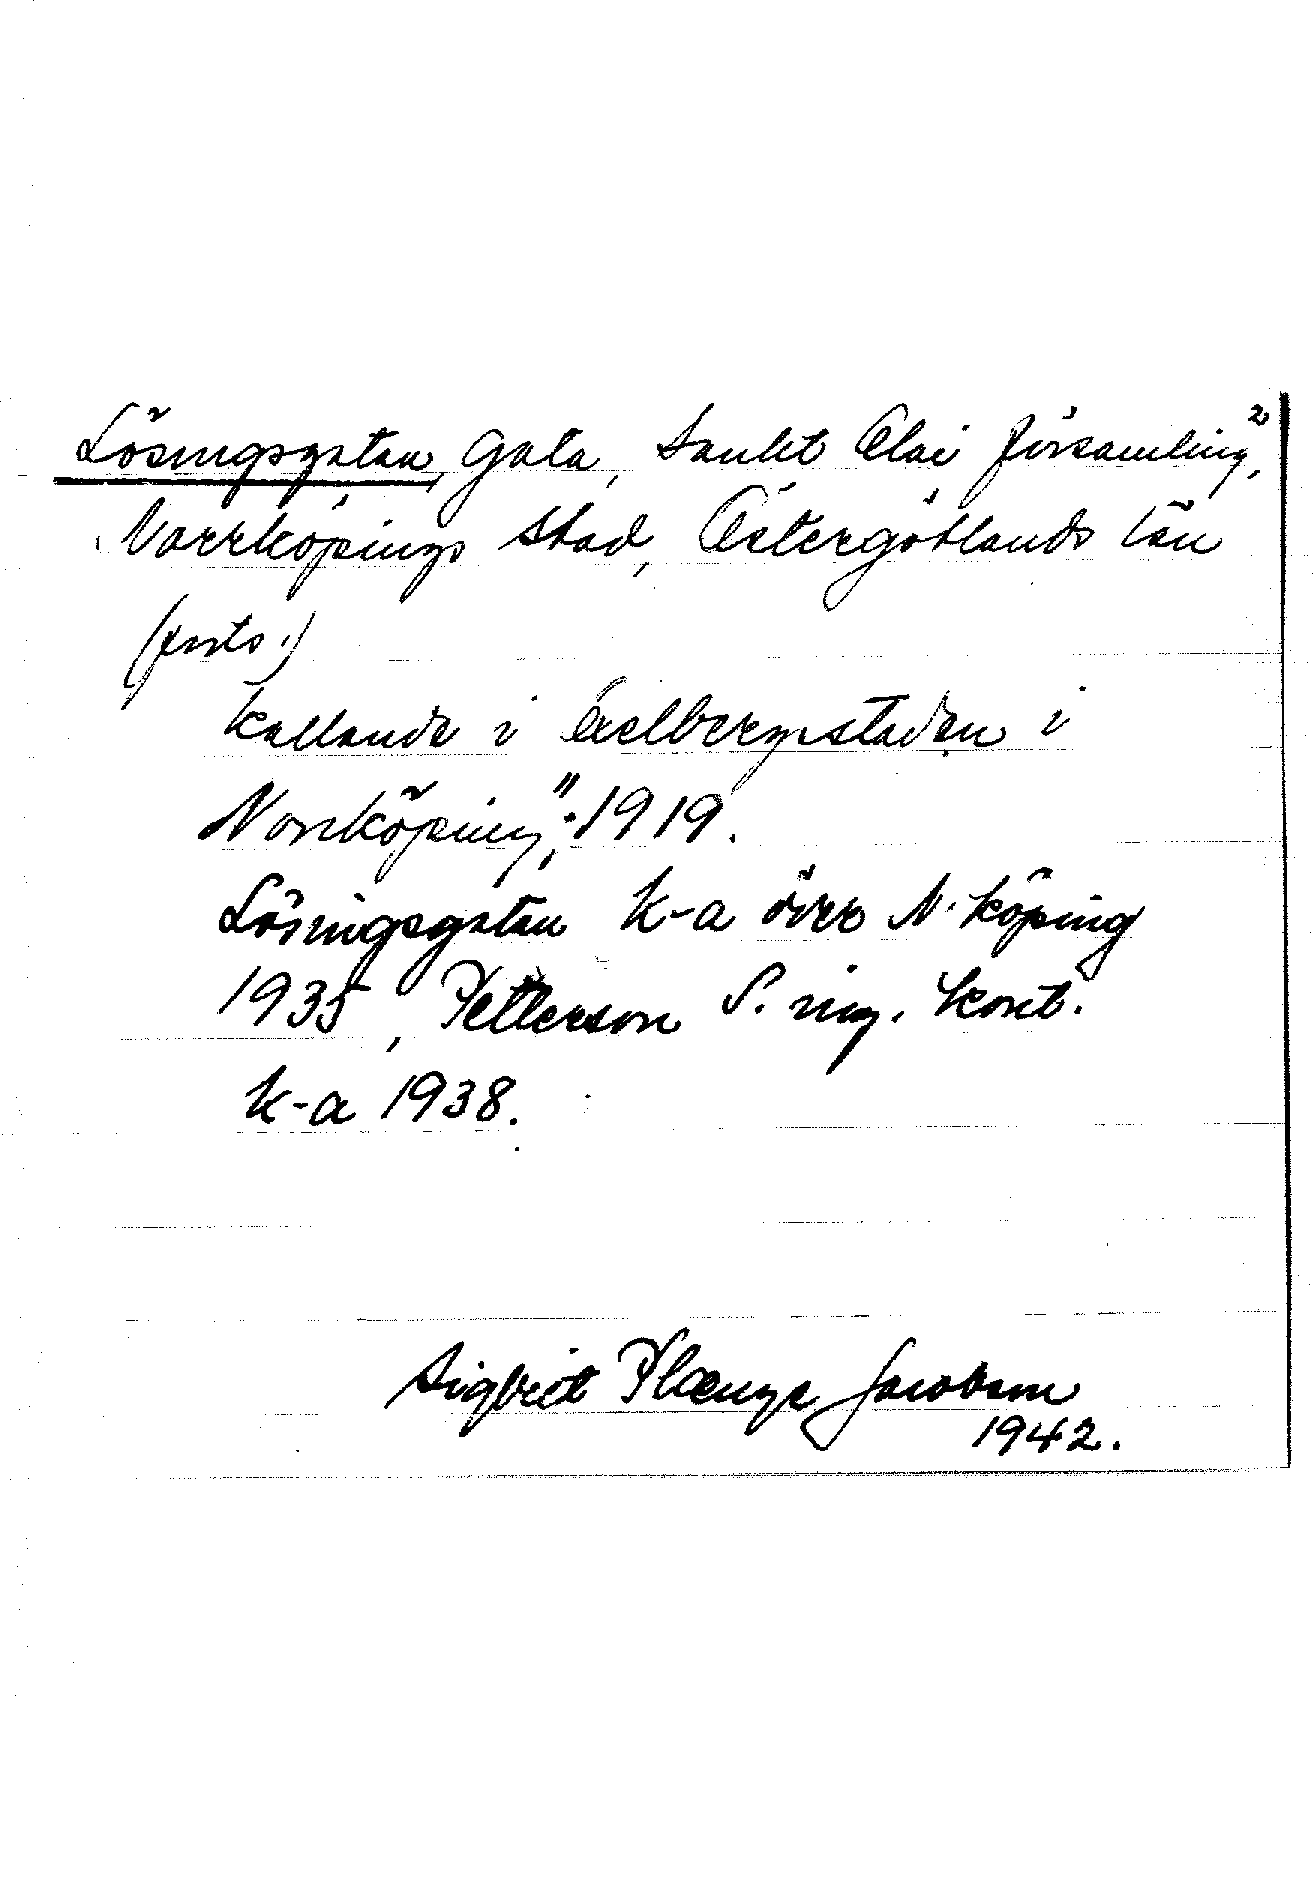 Lösingsgatan, Gata, Sankt Olai församling, 2
Norrköpings stad, Östergötlands län
(forts.)
kallande i Oxelbergsstaden i
Norrköping", 1919.
Lösingsgatan k-a över N.köping
1935, Petterson S. ing. kont.
k-a 1938.
Sigbrit Plænge Jacobson
1942.